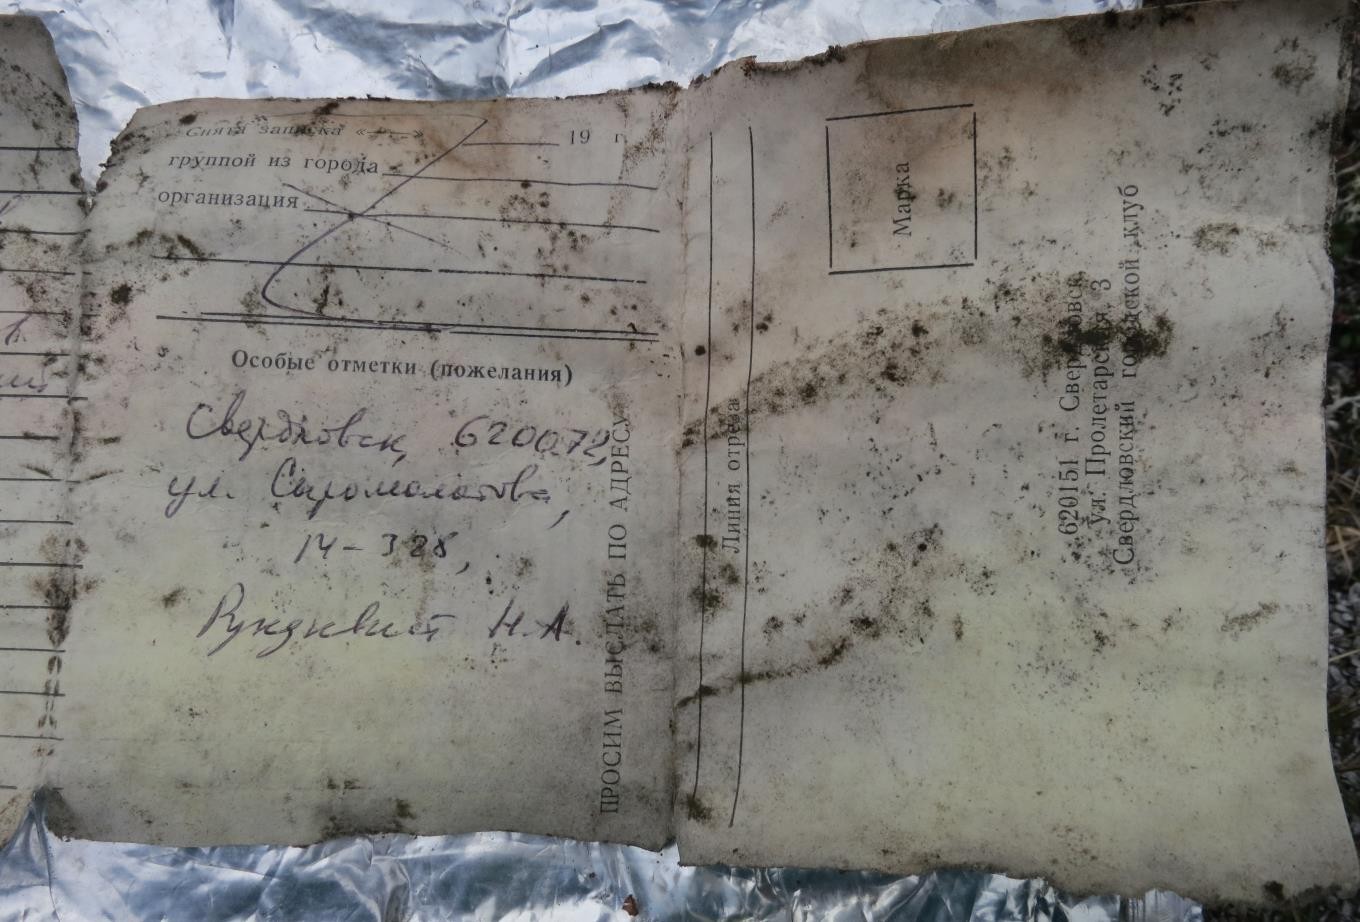 Снята записка « » 19 г.
группой из города
организация
Особые отметки (пожелания)
Свердловск, 620072,
ул. Сыромолотова,
14-328,
Рундквист Н.А.
ПРОСИМ ВЫСЛАТЬ ПО АДРЕСУ
Линия отреза
Марка
620151 г. Свердловск
ул. Пролетарская 3
Свердловский городской клуб